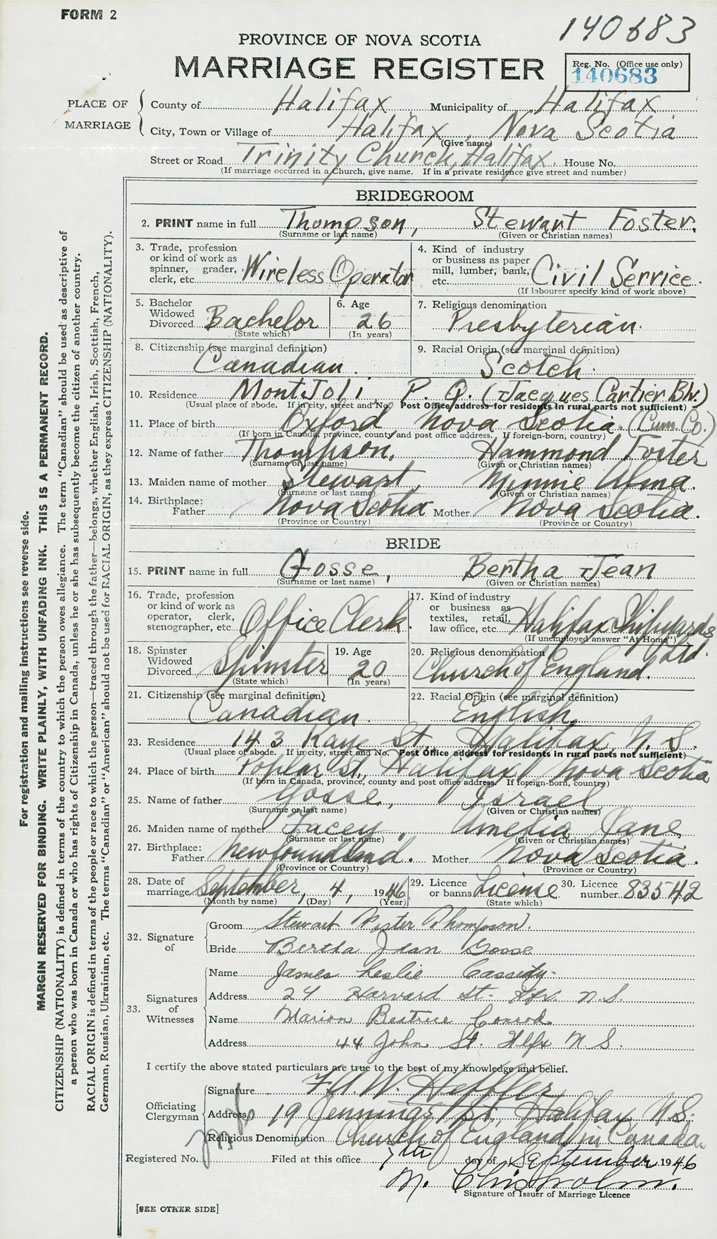 FORM 2
140683
PROVINCE OF NOVA SCOTIA
MARRIAGE REGISTER
Reg. No. (Office use only)
140683
PLACE OF MARRIAGE
County of Halifax Municipality of Halifax
City, Town or Village of Halifax, Nova Scotia
(Give name)
Street or Road Trinity Church, Halifax. House No.
(If marriage occurred in a Church, give name. If in a private residence give street and number)
BRIDEGROOM
2. PRINT name in full Thompson, Stewart Foster.
(Surname or last name) (Given or Christian names)
3. Trade, profession or kind of work as spinner, grader, clerk, etc. Wireless Operator
4. Kind of industry or business as paper mill, lumber, bank, etc. Civil Service.
(If labourer specify kind of work above)
5. Bachelor Widowed Divorced Bachelor
(State which)
6. Age 26
(In years)
7. Religious denomination
Presbyterian.
8. Citizenship (see marginal definition)
Canadian.
9. Racial Origin (see marginal definition)
Scotch.
10. Residence Mont Joli, P. Q. (Jacques Cartier Blv.)
(Usual place of abode. If in city, street and No. Post Office address for residents in rural parts not sufficient)
11. Place of birth Oxford, Nova Scotia. (Cum. Co.)
(If born in Canada, province, county and post office address. If foreign-born, country)
12. Name of father Thompson, Hammond Foster
(Surname or last name) (Given or Christian names)
13. Maiden name of mother Stewart, Minnie Alma.
(Surname or last name) (Given or Christian names)
14. Birthplace: Father Nova Scotia Mother Nova Scotia.
(Province or Country) (Province or Country)
BRIDE
15. PRINT name in full Gosse, Bertha Jean
(Surname or last name) (Given or Christian names)
16. Trade, profession or kind of work as operator, clerk, stenographer, etc. Office Clerk.
17. Kind of industry or business as textiles, retail, law office, etc. Halifax Shipyards
(If unemployed answer "At Home")
18. Spinster Widowed Divorced Spinster
(State which)
19. Age 20
(In years)
20. Religious denomination
Church of England.
21. Citizenship (see marginal definition)
Canadian.
22. Racial Origin (see marginal definition)
English,
23. Residence 143 Kaye St. Halifax N. S.
(Usual place of abode. If in city, street and No. Post Office address for residents in rural parts not sufficient)
24. Place of birth Poplar St, Halifax, Nova Scotia
(If born in Canada, province, county and post office address. If foreign-born, country)
25. Name of father Gosse, Israel
(Surname or last name) (Given or Christian names)
26. Maiden name of mother Amelia Jane
(Surname or last name) (Given or Christian names)
27. Birthplace: Father Newfoundland. Mother Nova Scotia.
(Province or Country) (Province or Country)
28. Date of marriage September, 4, 1946
(Month by name) (Day) (Year)
29. Licence or banns License
(State which)
30. Licence number 83542
32. Signature of
Groom Stewart Foster Thompson.
Bride Bertha Jean Gosse
33. Signatures of Witnesses
Name James Leslie Cassidy.
Address 24 Harvard St. Hfx N.S.
Name Marion Beatrice Conrod
Address 44 John St. Hlfx N S.
I certify the above stated particulars are true to the best of my knowledge and belief.
Officiating Clergyman
Signature W. Heffler
Address 19 Jennings St, Halifax N.S.
Religious Denomination Church of England in Canada.
Registered No. Filed at this office 7th day of September 1946
M. Chisholm.
Signature of Issuer of Marriage Licence
[SEE OTHER SIDE]
For registration and mailing instructions see reverse side.
MARGIN RESERVED FOR BINDING. WRITE PLAINLY, WITH UNFADING INK. THIS IS A PERMANENT RECORD.
CITIZENSHIP (NATIONALITY) is defined in terms of the country to which the person owes allegiance. The term "Canadian" should be used as descriptive of
a person who was born in Canada or who has rights of Citizenship in Canada, unless he or she has subsequently become the citizen of another country.
RACIAL ORIGIN is defined in terms of the people or race to which the person—traced through the father—belongs, whether English, Irish, Scottish, French,
German, Russian, Ukrainian, etc. The terms "Canadian" or "American" should not be used for RACIAL ORIGIN, as they express CITIZENSHIP (NATIONALITY).